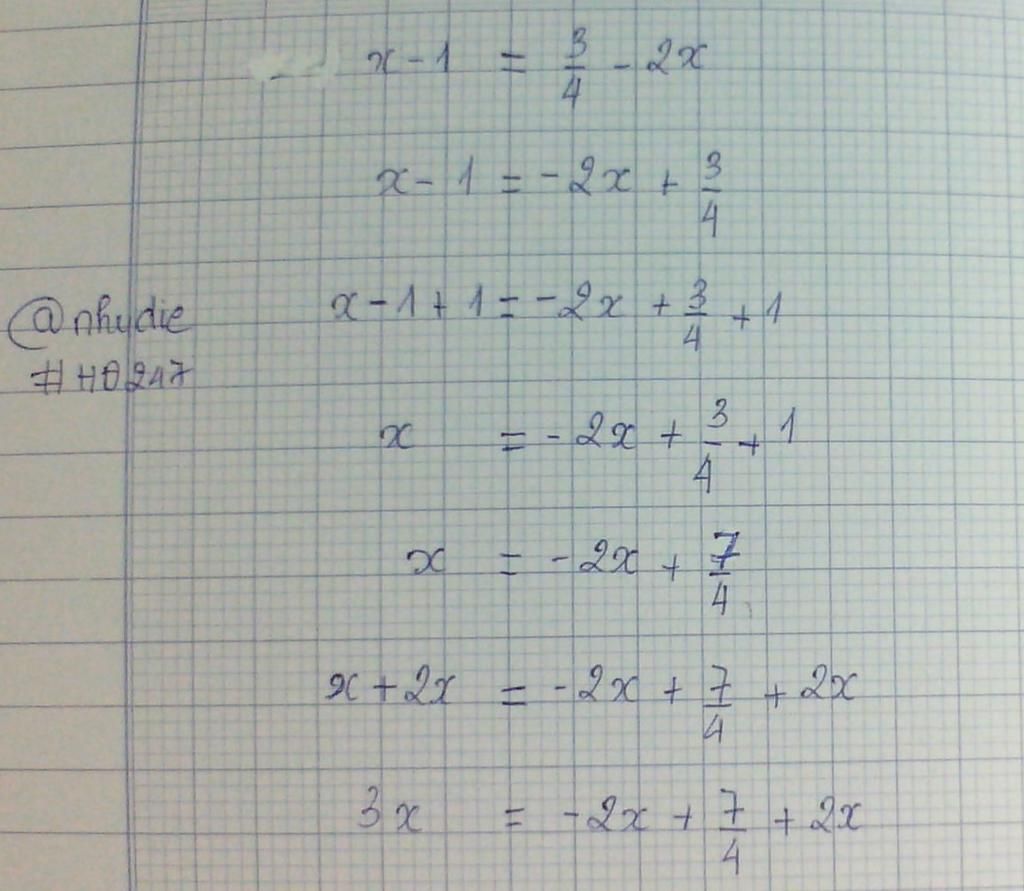 x - 1 = 3/4 - 2x
x - 1 = -2x + 3/4
x - 1 + 1 = -2x + 3/4 + 1
@nhydie
#HD247
x = -2x + 3/4 + 1
x = -2x + 7/4
x + 2x = -2x + 7/4 + 2x
3x = -2x + 7/4 + 2x